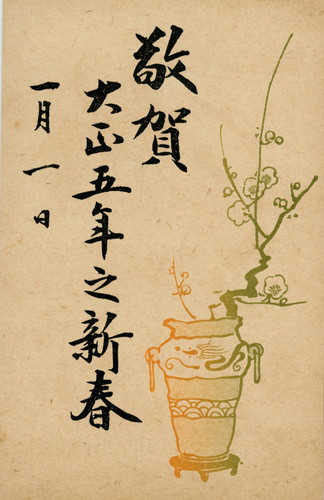 敬賀
大正五年之新春
一月一日